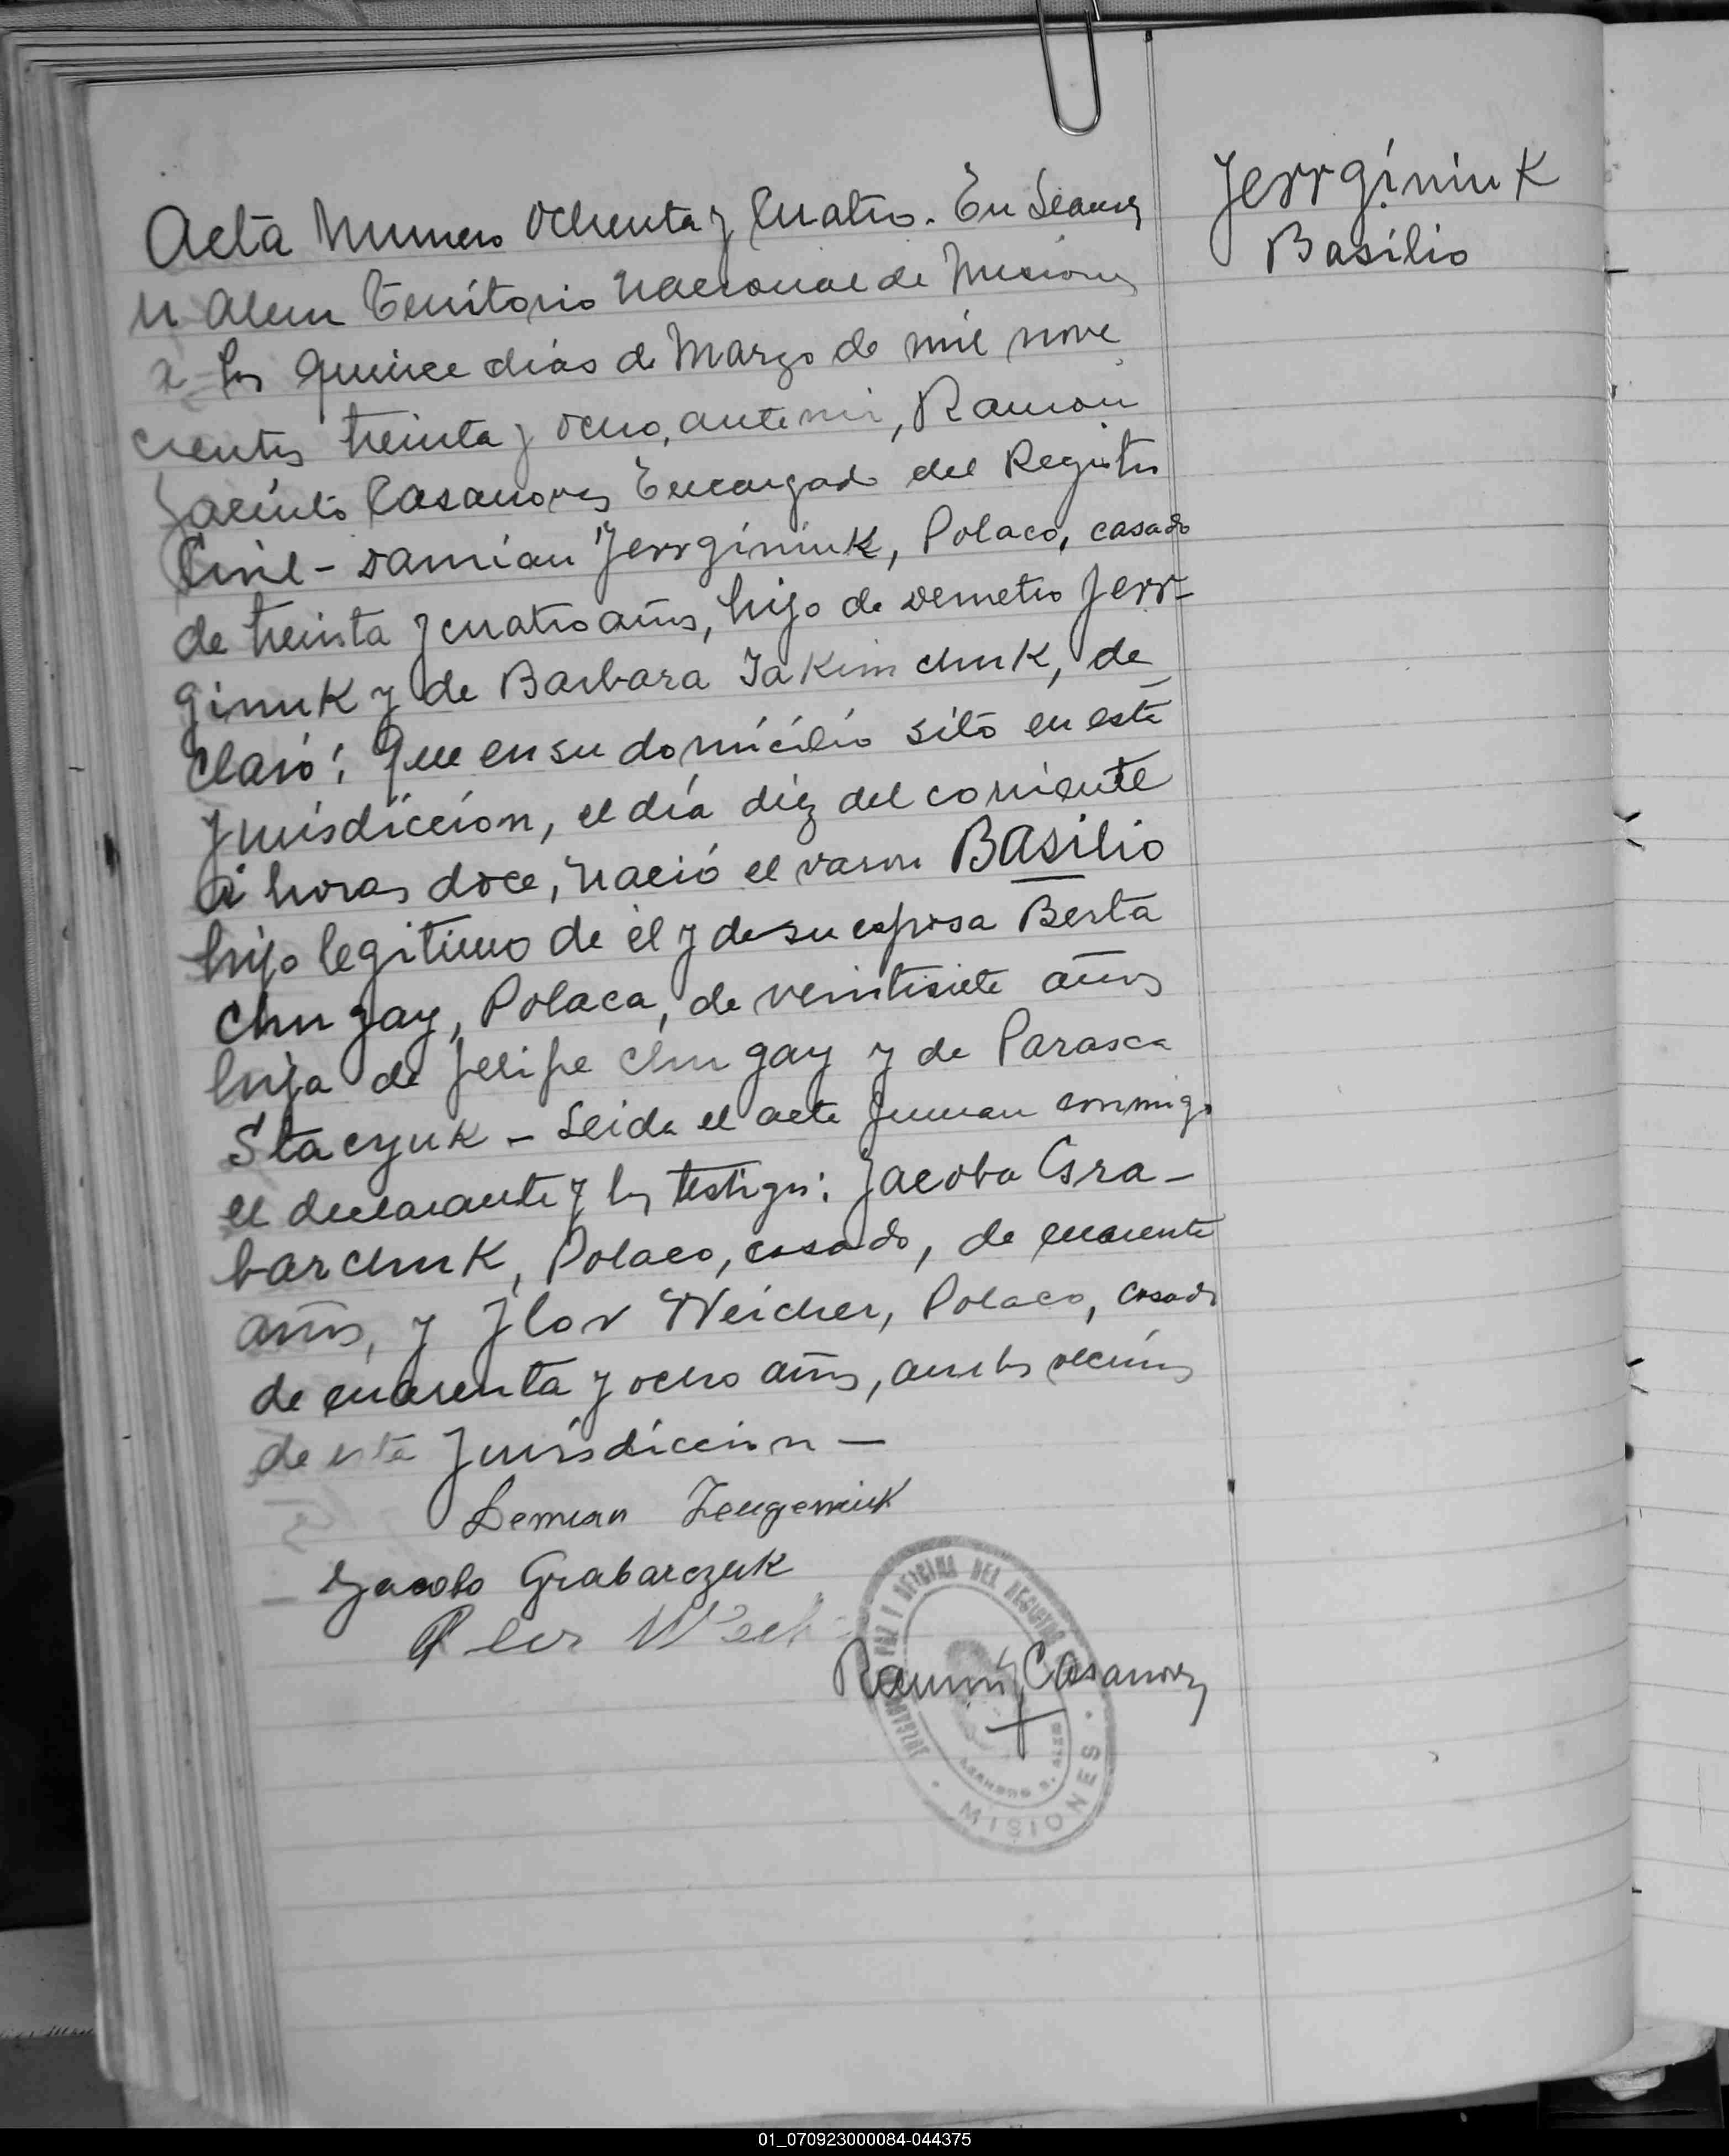 Jerrginiuk
Basilio
Acta Numero Ochenta y Cuatro. En Leandro
N Alem Territorio Nacional de Misiones
a los quince dias de Marzo de mil nove
cientos treinta y ocho, ante mi, Ramon
Jacinto Casanova, Encargado del Registro
Civil - Damian Jerrginiuk, Polaco, casado
de treinta y cuatro años, hijo de Demetrio Jerr-
ginuk y de Barbara Jakimchuk, de
claró: Que en su domicilio sito en esta
Jurisdiccion, el día diez del corriente
a horas doce, nació el varon Basilio
hijo legitimo de él y de su esposa Berta
Chugay, Polaca, de veintisiete años
hija de Felipe Chugay y de Parasca
Stacyuk - Leida el acta firman conmigo
el declarante y los testigos: Jacobo Gra-
barchuk, Polaco, casado, de cuarenta
años, y Flor Weicher, Polaco, casado
de cuarenta y ocho años, ambos vecinos
de esta Jurisdiccion -
Demian
Jacobo Grabarczuk
Ramon J Casanova
PAZ Y OFICINA DEL REGISTRO
LEANDRO N. ALEM
MISIONES
01_070923000084-044375